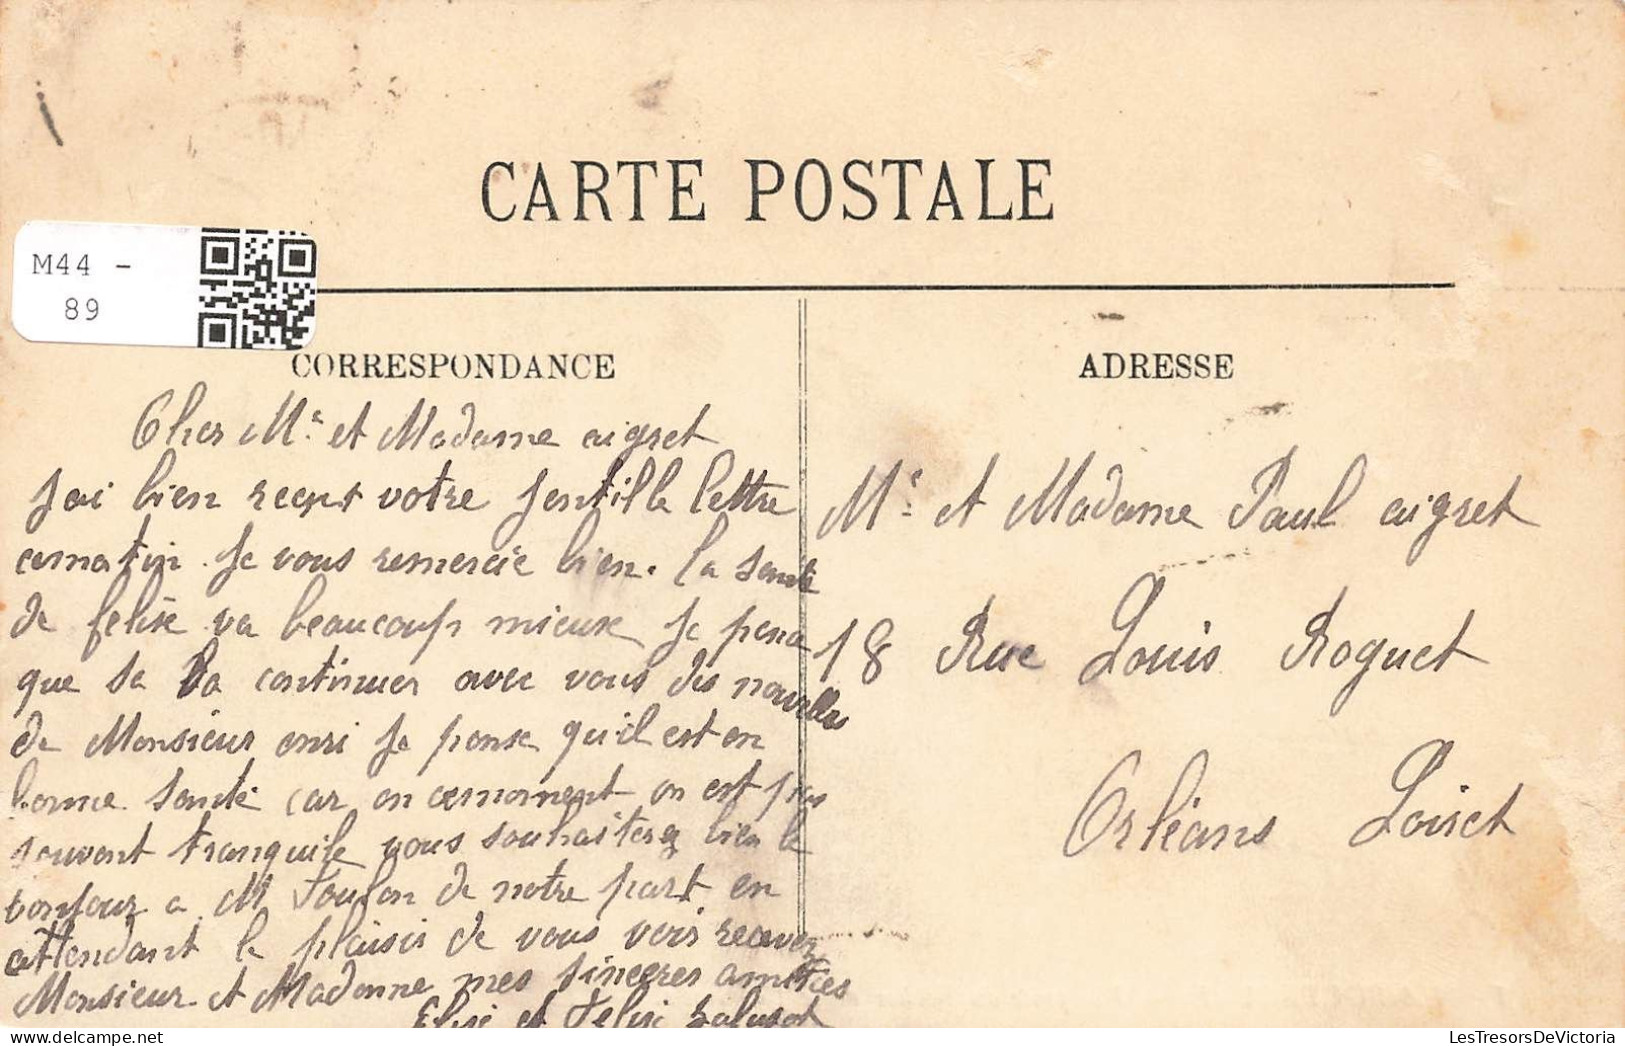 CARTE POSTALE
M44 -
89
CORRESPONDANCE
Cher Mr. et Madame aigret
J'ai bien reçus votre jentille lettre
cematin. Je vous remercie bien. la Santé
de felise va beaucoup mieuse je pense
que sa va continuer avec vous des nouvelles
de Monsieur enri je panse qu'il est en
bonne Santé car en cemoment on est pas
souvent tranquile vous souhaiterez bien le
bonjour a M Toulon de notre part en
attendant le plaisir de vous voir recevez
Monsieur et Madame mes sinceres amitiés
Elise et Felise
ADRESSE
Mr. et Madame Paul aigret
18 Rue Louis Roguet
Orléans Loiret
LesTresorsDeVictoria